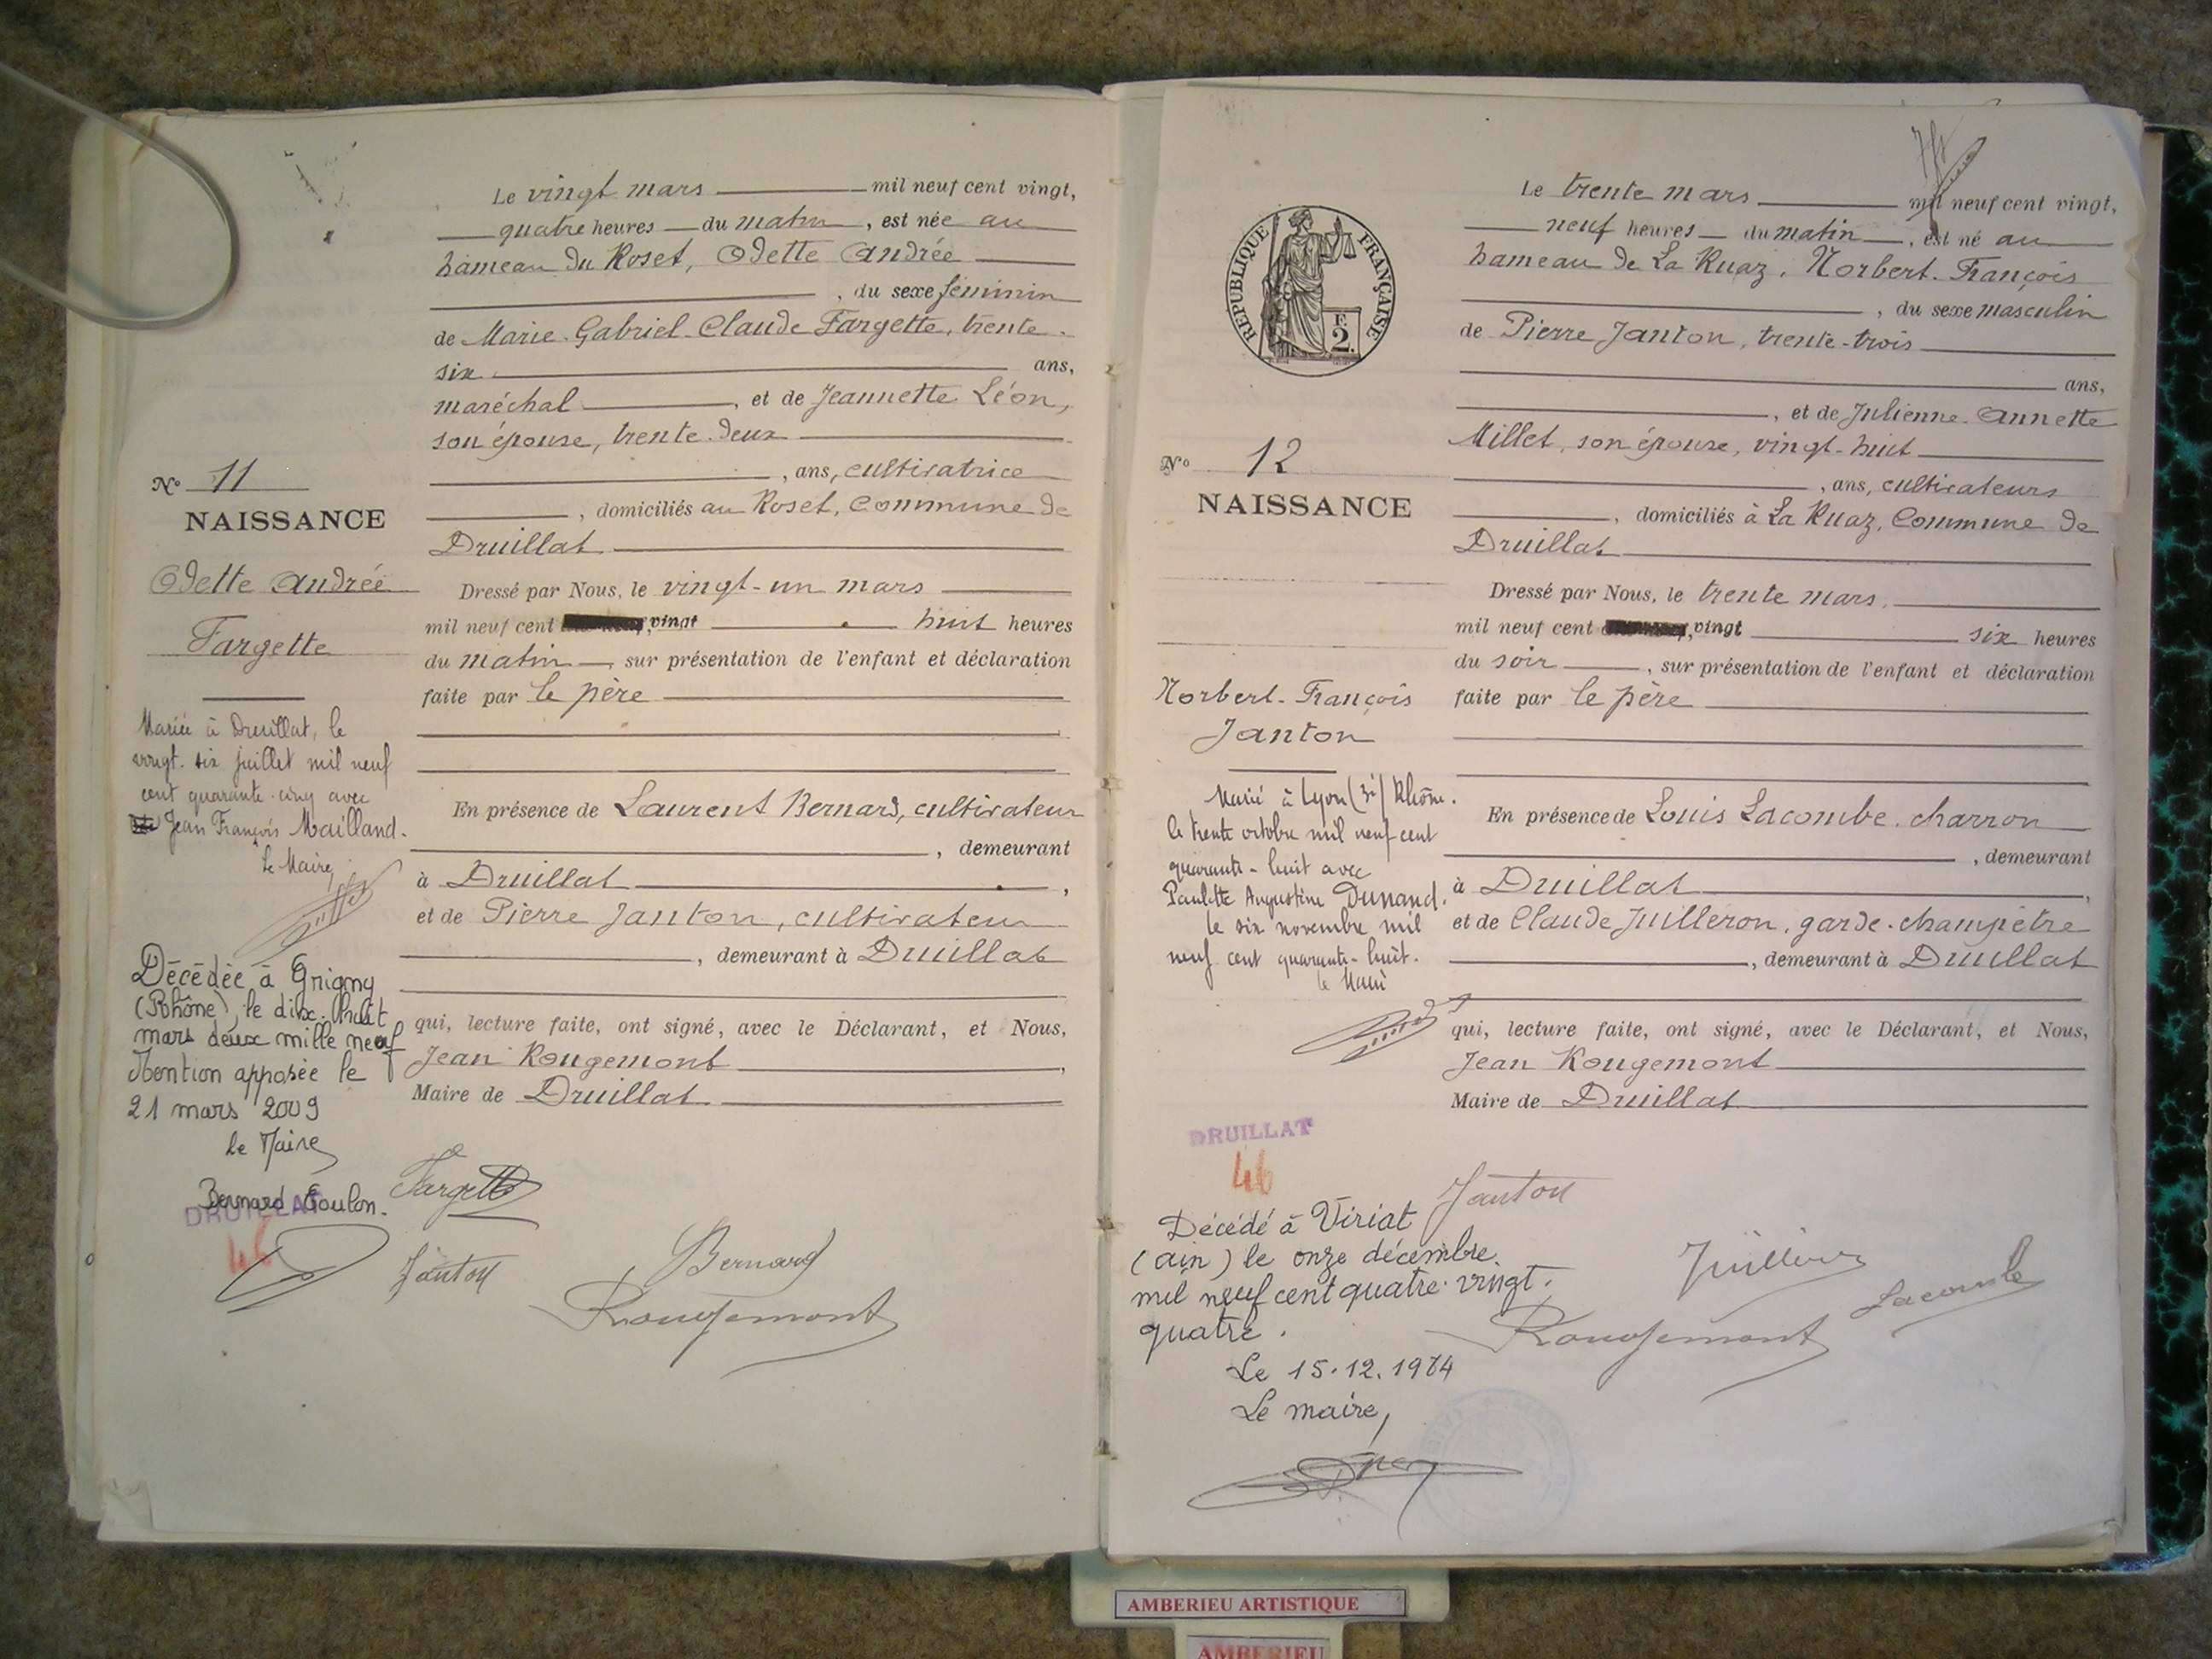 Le vingt mars mil neuf cent vingt,
quatre heures du matin, est née au
hameau du Roset, Odette Andrée
, du sexe féminin
de Marie-Gabriel-Claude Fargette, trente-
six ans,
maréchal, et de Jeannette Léon,
son épouse, trente-deux
, ans, cultivatrice
, domiciliés au Roset, Commune de
Druillat
N° 11
NAISSANCE
Odette Andrée
Fargette
Dressé par Nous, le vingt-un mars
mil neuf cent vingt huit heures
du matin, sur présentation de l'enfant et déclaration
faite par le père
En présence de Laurent Bernard, cultivateur
, demeurant
à Druillat,
et de Pierre Janton, cultivateur
, demeurant à Druillat
qui, lecture faite, ont signé, avec le Déclarant, et Nous,
Jean Rougemont,
Maire de Druillat
Mariée à Druillat, le
vingt-six juillet mil neuf
cent quarante-cinq avec
Jean François Mailland.
Le Maire,
Décédée à Grigny
(Rhône), le dix-huit
mars deux mille neuf
Mention apposée le
21 mars 2009
le Maire
Bernard
DRUILLAT
46
Fargette
Janton
Bernard
Rougemont
RÉPUBLIQUE FRANÇAISE
F.
2.
Le trente mars mil neuf cent vingt,
neuf heures du matin, est né au
hameau de La Ruaz, Norbert-François
, du sexe masculin
de Pierre Janton, trente-trois
ans,
, et de Julienne-Annette
Millet, son épouse, vingt-huit
, ans, cultivateurs
, domiciliés à La Ruaz, Commune de
Druillat
N° 12
NAISSANCE
Norbert-François
Janton
Dressé par Nous, le trente mars,
mil neuf cent vingt six heures
du soir, sur présentation de l'enfant et déclaration
faite par le père
En présence de Louis Lacombe, charron
, demeurant
à Druillat,
et de Claude Juilleron, garde-champêtre
, demeurant à Druillat
qui, lecture faite, ont signé, avec le Déclarant, et Nous,
Jean Rougemont
Maire de Druillat
Marié à Lyon (3è) Rhône.
le trente octobre mil neuf cent
quarante-huit avec
Paulette Augustine Dunand.
le six novembre mil
neuf cent quarante-huit.
le Maire
DRUILLAT
46
Décédé à Viriat
(ain) le onze décembre
mil neuf cent quatre-vingt-
quatre.
Le 15.12.1984
Le maire,
Janton
Juilleron
Lacombe
Rougemont
AMBERIEU ARTISTIQUE
AMBERIEU